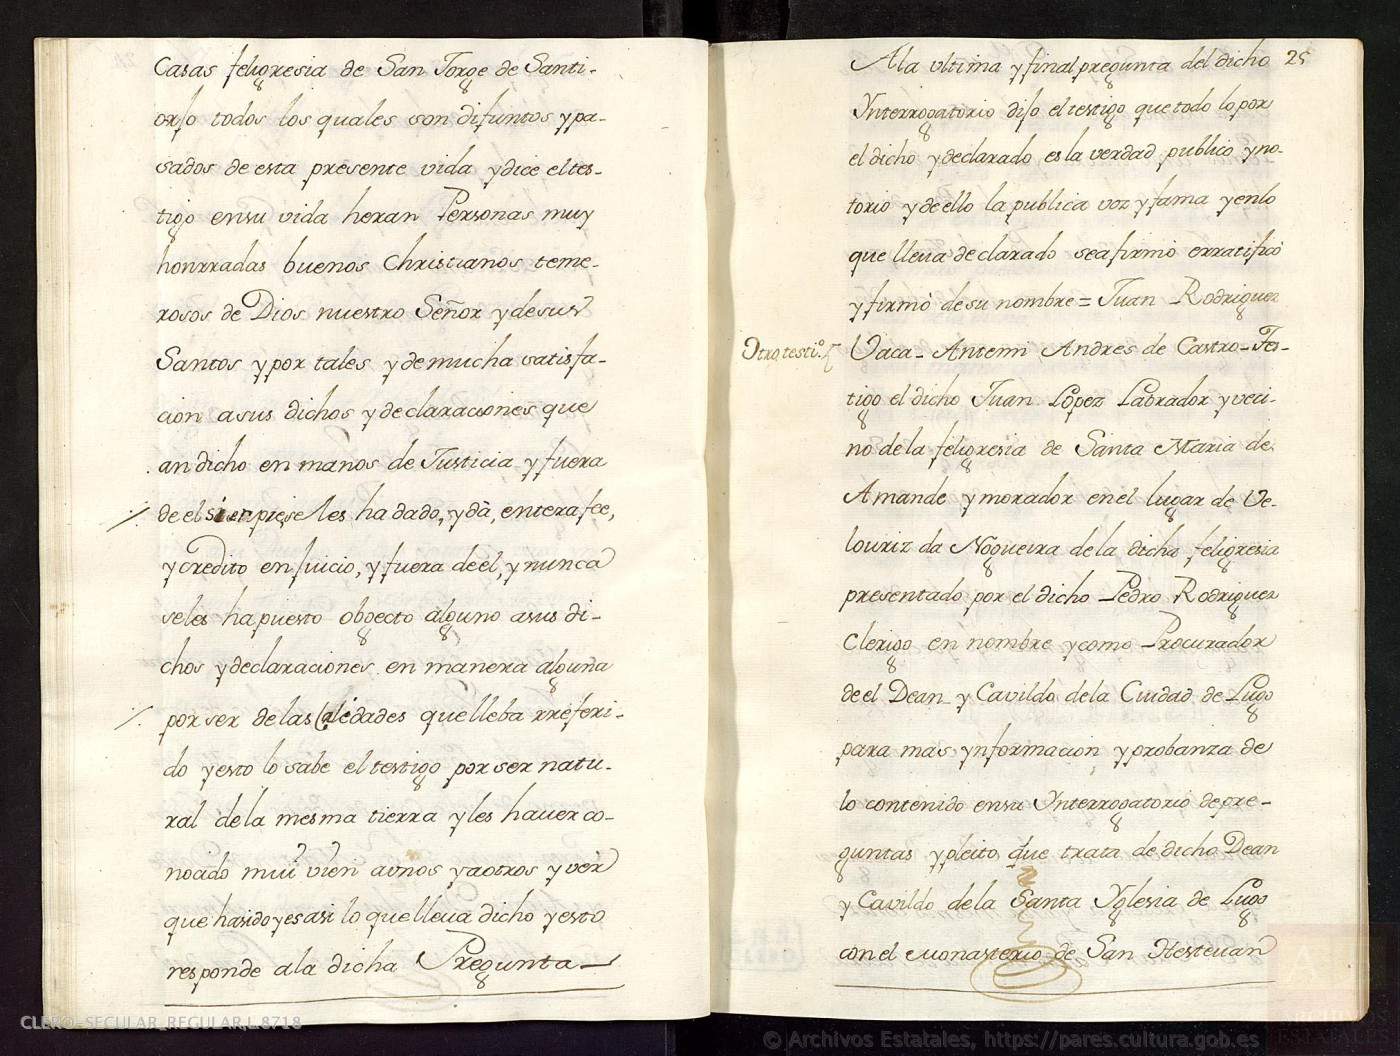 Casas feligresia de San Jorge de Santi-
orjo todos los quales son difuntos y pa-
sados de esta presente vida y dice el tes-
tigo en su vida heran Personas muy
honrradas buenos Christianos teme-
rosos de Dios nuestro Señor y de sus
Santos y por tales y de mucha satisfa-
cion a sus dichos y declaraciones que
an dicho en manos de Justicia y fuera
de el sienpre se les ha dado, y dà, entera fee,
y credito en juicio, y fuera de él, y nunca
se les ha puesto obgecto alguno a sus di-
chos y declaraciones en manera alguna
por ser de las Calidades que lleba rreferi-
do y esto lo sabe el testigo por ser natu-
ral de la mesma tierra y les haver co-
nocido mui vien a unos y a otros y ver
que ha sido y es asi lo que lleua dicho y esto
responde a la dicha Pregunta
25
A la ultima y final pregunta del dicho
Ynterrogatorio dijo el testigo que todo lo por
el dicho y declarado es la verdad publico y no-
torio y de ello la publica voz y fama y en lo
que lleua declarado se afirmò erratificò
y firmò de su nombre = Juan Rodriguez
Otro testi.º
Vaca - Antemi Andres de Castro - Tes-
tigo el dicho Juan Lopez Labrador y veci-
no de la feligresia de Santa Maria de
Amande y morador en el lugar de Ve-
louriz da Nogueira de la dicha feligresia
presentado por el dicho Pedro Rodriguez
Clerigo en nombre y como Procurador
de el Dean y Cavildo de la Ciudad de Lugo
para mas ynformacion y probanza de
lo contenido en su Ynterrogatorio de pre-
guntas y pleito que trata de dicho Dean
y Cavildo de la Santa Yglesia de Lugo
con el Monasterio de San Hestevan
CLERO-SECULAR_REGULAR,L.8718
© Archivos Estatales, https://pares.cultura.gob.es
A
ARCHIVOS
ESTATALES